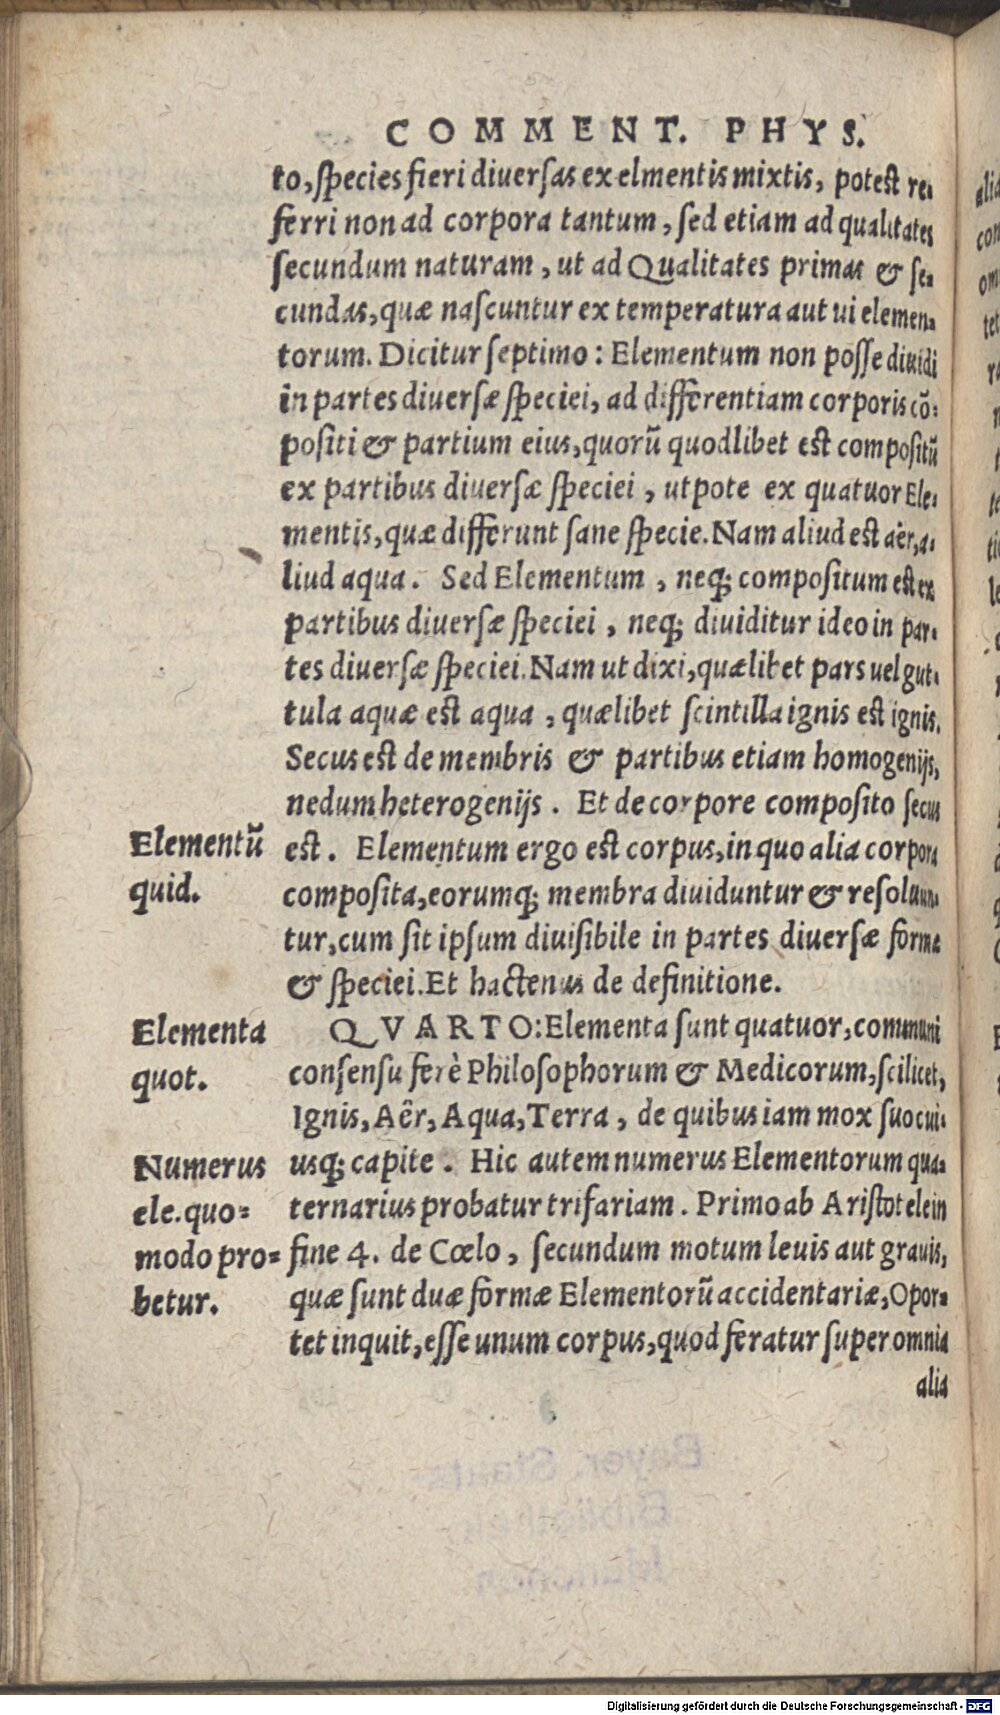 COMMENT. PHYS.
to, species fieri diuersas ex elmentis mixtis, potest re-
ferri non ad corpora tantum, sed etiam ad qualitates
secundum naturam, ut ad Qualitates primas & se-
cundas, quæ nascuntur ex temperatura aut ui elemen-
torum. Dicitur septimo: Elementum non posse diuidi
in partes diuersæ speciei, ad differentiam corporis cō-
positi & partium eius, quorũ quodlibet est compositũ
ex partibus diuersæ speciei, utpote ex quatuor Ele-
mentis, quæ differunt sane specie. Nam aliud est aër, a-
liud aqua. Sed Elementum, neq; compositum est ex
partibus diuersæ speciei, neq; diuiditur ideo in par-
tes diuersæ speciei. Nam ut dixi, quælibet pars uel gut-
tula aquæ est aqua, quælibet scintilla ignis est ignis.
Secus est de membris & partibus etiam homogenijs,
nedum heterogenijs. Et de corpore composito secus
Elementũ
quid.
est. Elementum ergo est corpus, in quo alia corpora
composita, eorumq; membra diuiduntur & resoluun-
tur, cum sit ipsum diuisibile in partes diuersæ formæ
& speciei. Et hactenus de definitione.
Elementa
quot.
QVARTO: Elementa sunt quatuor, communi
consensu ferè Philosophorum & Medicorum, scilicet,
Ignis, Aêr, Aqua, Terra, de quibus iam mox suo cui-
Numerus
ele. quo-
modo pro-
betur.
usq; capite. Hic autem numerus Elementorum qua-
ternarius probatur trifariam. Primo ab Aristotele in
fine 4. de Cœlo, secundum motum leuis aut grauis,
quæ sunt duæ formæ Elementorũ accidentariæ, Opor-
tet inquit, esse unum corpus, quod feratur super omnia
alia
Bayer. Staats-
Bibliothek
München
Digitalisierung gefördert durch die Deutsche Forschungsgemeinschaft - DFG